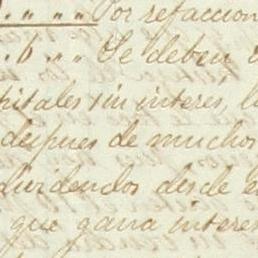 " " " " Por refaccion
. 6 . " " Se deben
pitales sin interes, l
despues de muchos
dividendos desde e
que gana interes